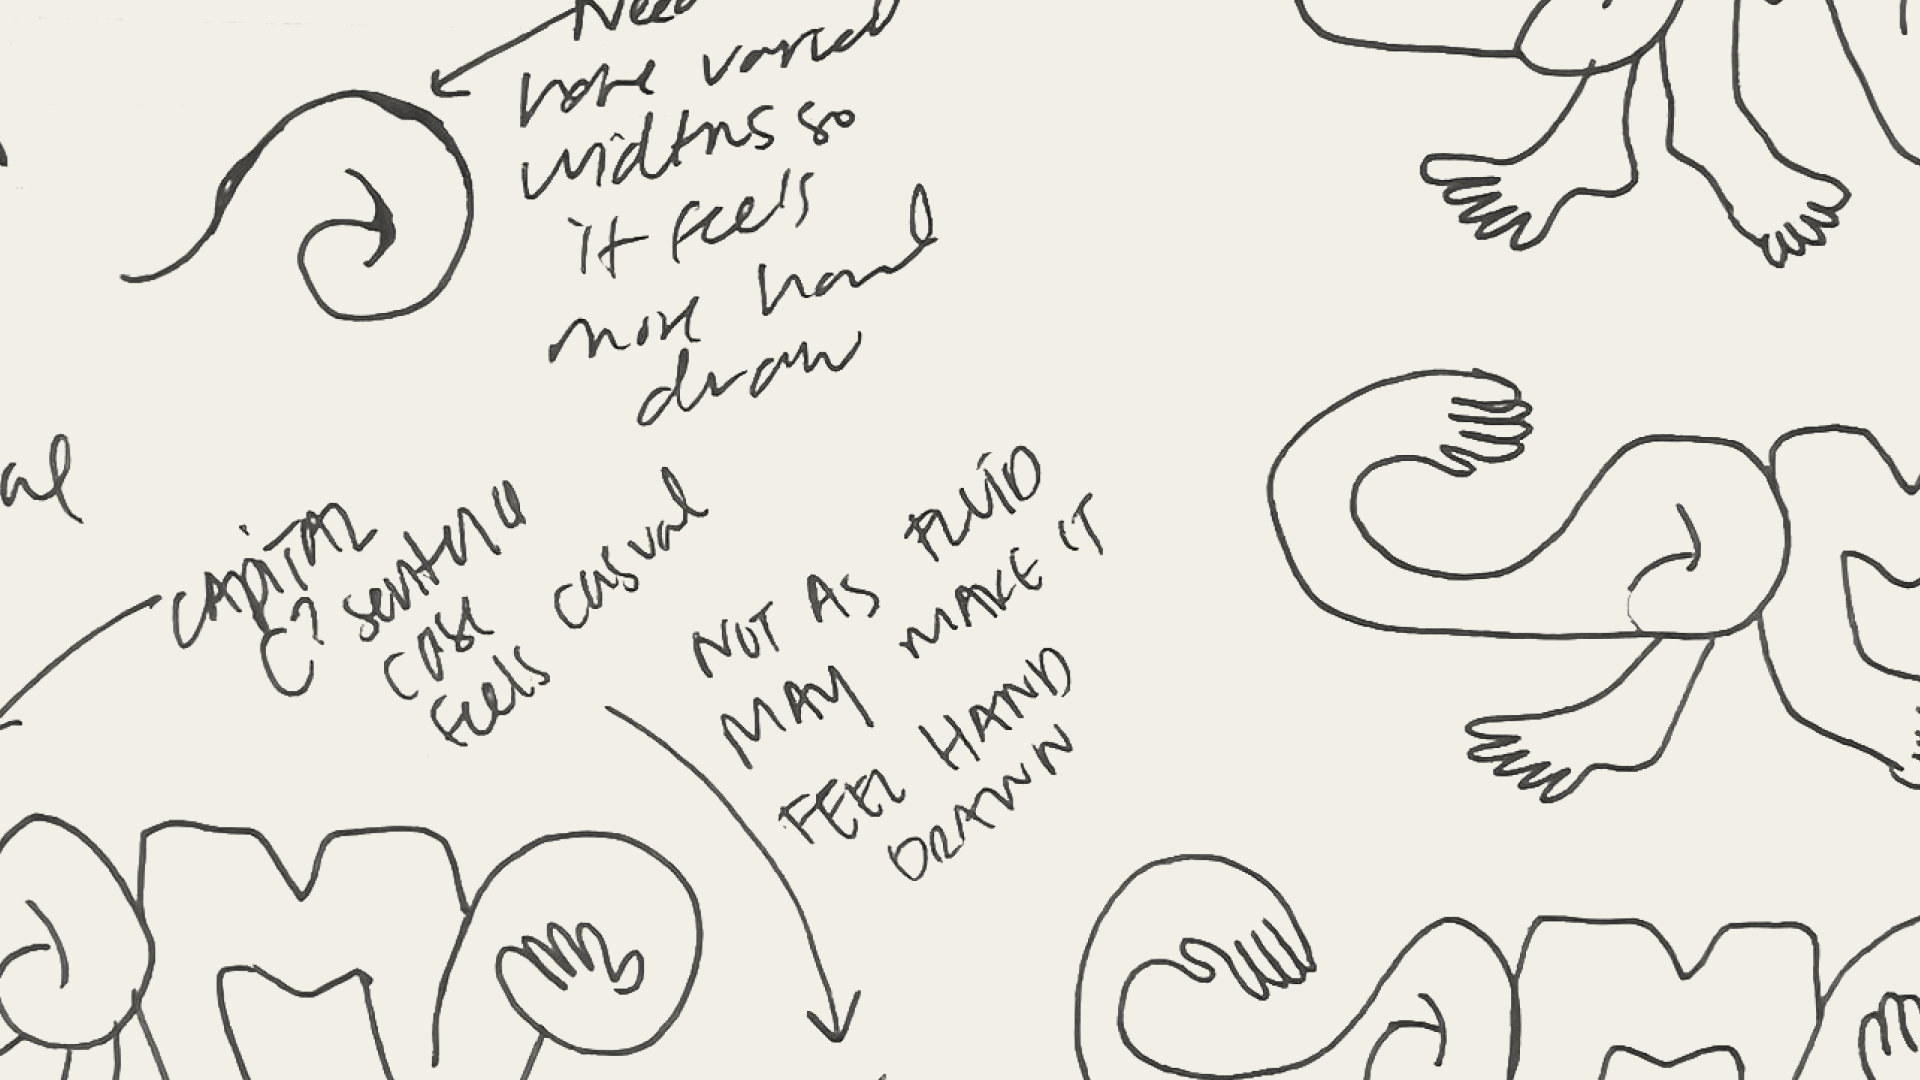 Need
more varied
widths so
it feels
more hand
draw
al
CAPITAL
C? sentence
case
feels casual
NOT AS FLUID
MAY MAKE IT
FEEL HAND
DRAWN